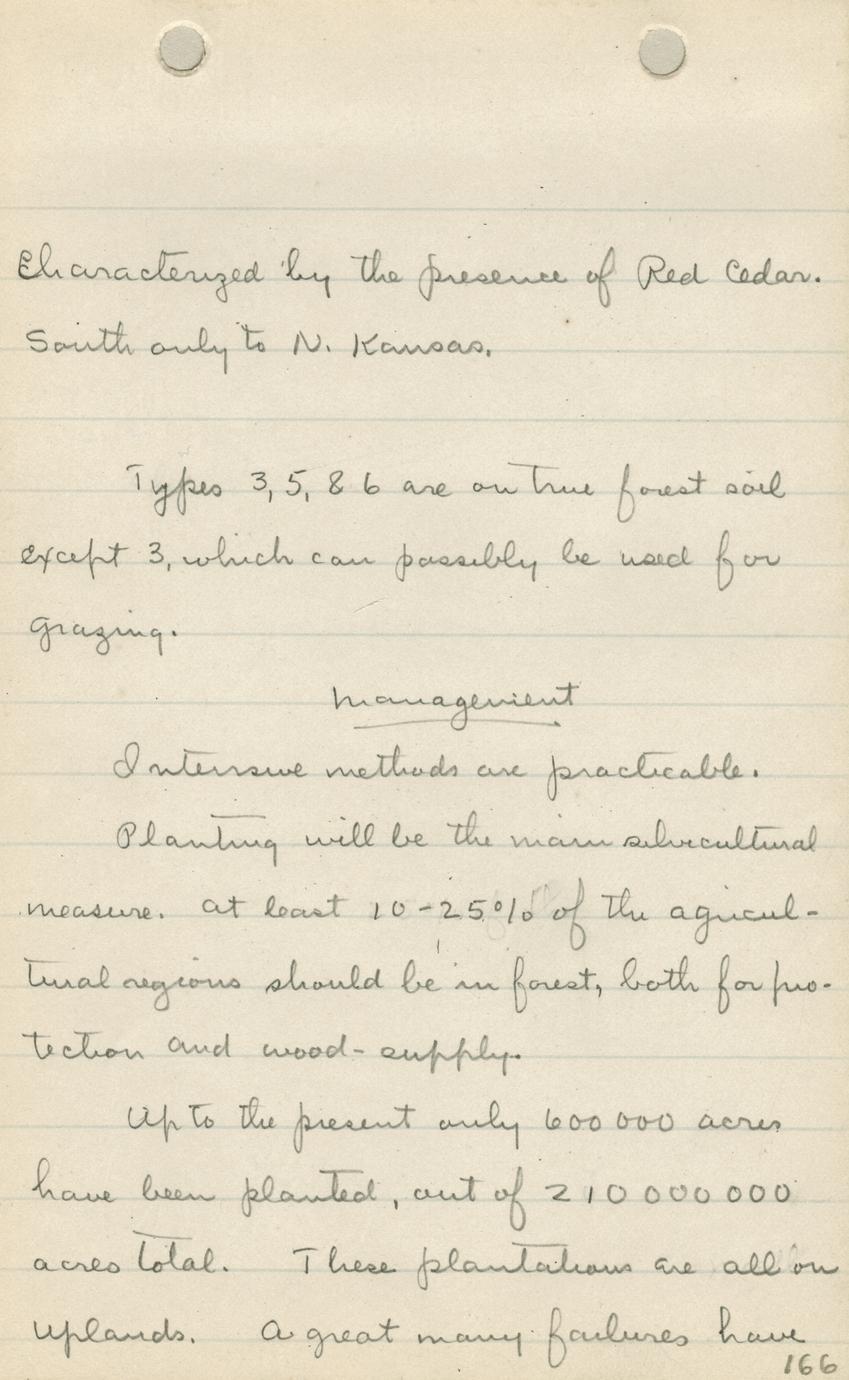 Characterized by the presence of Red Cedar.
South only to N. Kansas.
Types 3, 5, & 6 are on true forest soil
except 3, which can possibly be used for
grazing.
Management
Intensive methods are practicable.
Planting will be the main silvicultural
measure. At least 10-25% of the agricul-
tural regions should be in forest, both for pro-
tection and wood-supply.
Up to the present only 600 000 acres
have been planted, out of 210 000 000
acres total. These plantations are all on
uplands. A great many failures have
166